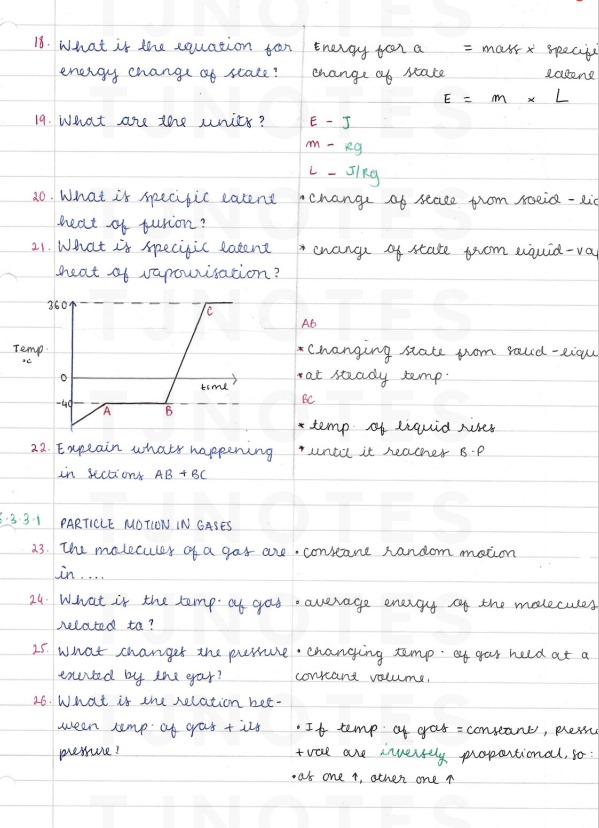 18. What is the equation for
energy change of state?
Energy for a = mass × specifi
change of state latent
E = m × L
19. What are the units?
E - J
m - kg
L - J/kg
20. What is specific latent
heat of fusion?
• change of state from solid - lic
21. What is specific latent
heat of vapourisation?
* change of state from liquid - vap
360
C
Temp.
°C
0
time
-40
A
B
AB
* Changing state from solid - liqu
* at steady temp.
BC
* temp. of liquid rises
* until it reaches B.P
22. Explain whats happening
in sections AB + BC
6.3.3.1 PARTICLE MOTION IN GASES
23. The molecules of a gas are
in....
• constant random motion
24. What is the temp. of gas
related to?
• average energy of the molecules
25. What changes the pressure
exerted by the gas?
• changing temp. of gas held at a
constant volume.
26. What is the relation bet-
ween temp. of gas + its
pressure?
• If temp. of gas = constant, pressu
+ vol are inversely proportional, so:
• as one ↑, other one ↑
TJNOTES